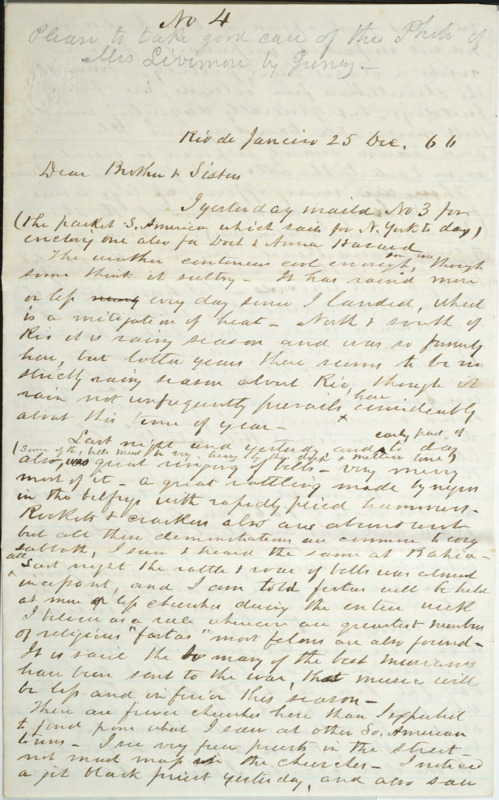 No 4
Please to take good care of the Photo of
Mrs Livimore by Gurney -
Rio de Janeiro 25 Dec. 66
Dear Brother & Sisters
I yesterday maild No 3 for
(the packet S. America which sails for N. York to day)
enclosing one also for & Anna
The weather continues cool enough for me, though
some think it sultry - It has raind more
or less every day since I landed, which
is a mitigation of heat - North & south of
Rio it is rainy season and was so formerly
here, but latter years there seems to be no
strictly rainy season about Rio, though it
rain not unfrequently prevails here considerably
about this time of year -
Last night and yesterday and early part of to day
(Some of the bells must be very heavy by the deep & metallic tone)
also was great ringing of bells - very merry
most of it - a great rattling made by negros
in the belfrys with rapidly plied hammers.
Rockets & crackers also are abundant
but all these demonstrations are common to every
sabbath, I saw & heard the same at Bahia -
All last night the rattle & roar of bells was almost
incessant, and I am told festas will be held
at more or less churches during the entire week
I believe as a rule where are greatest number
of religious "festas" most felons are also found -
It is said the so many of the best musicians
have been sent to the war, that music will
be less and inferior this season -
There are fewer churches here than I expected
to find from what I saw at other So. American
towns - I see very few priests in the street -
not much mass in the churches - I noticed
a jet black priest yesterday, and also saw